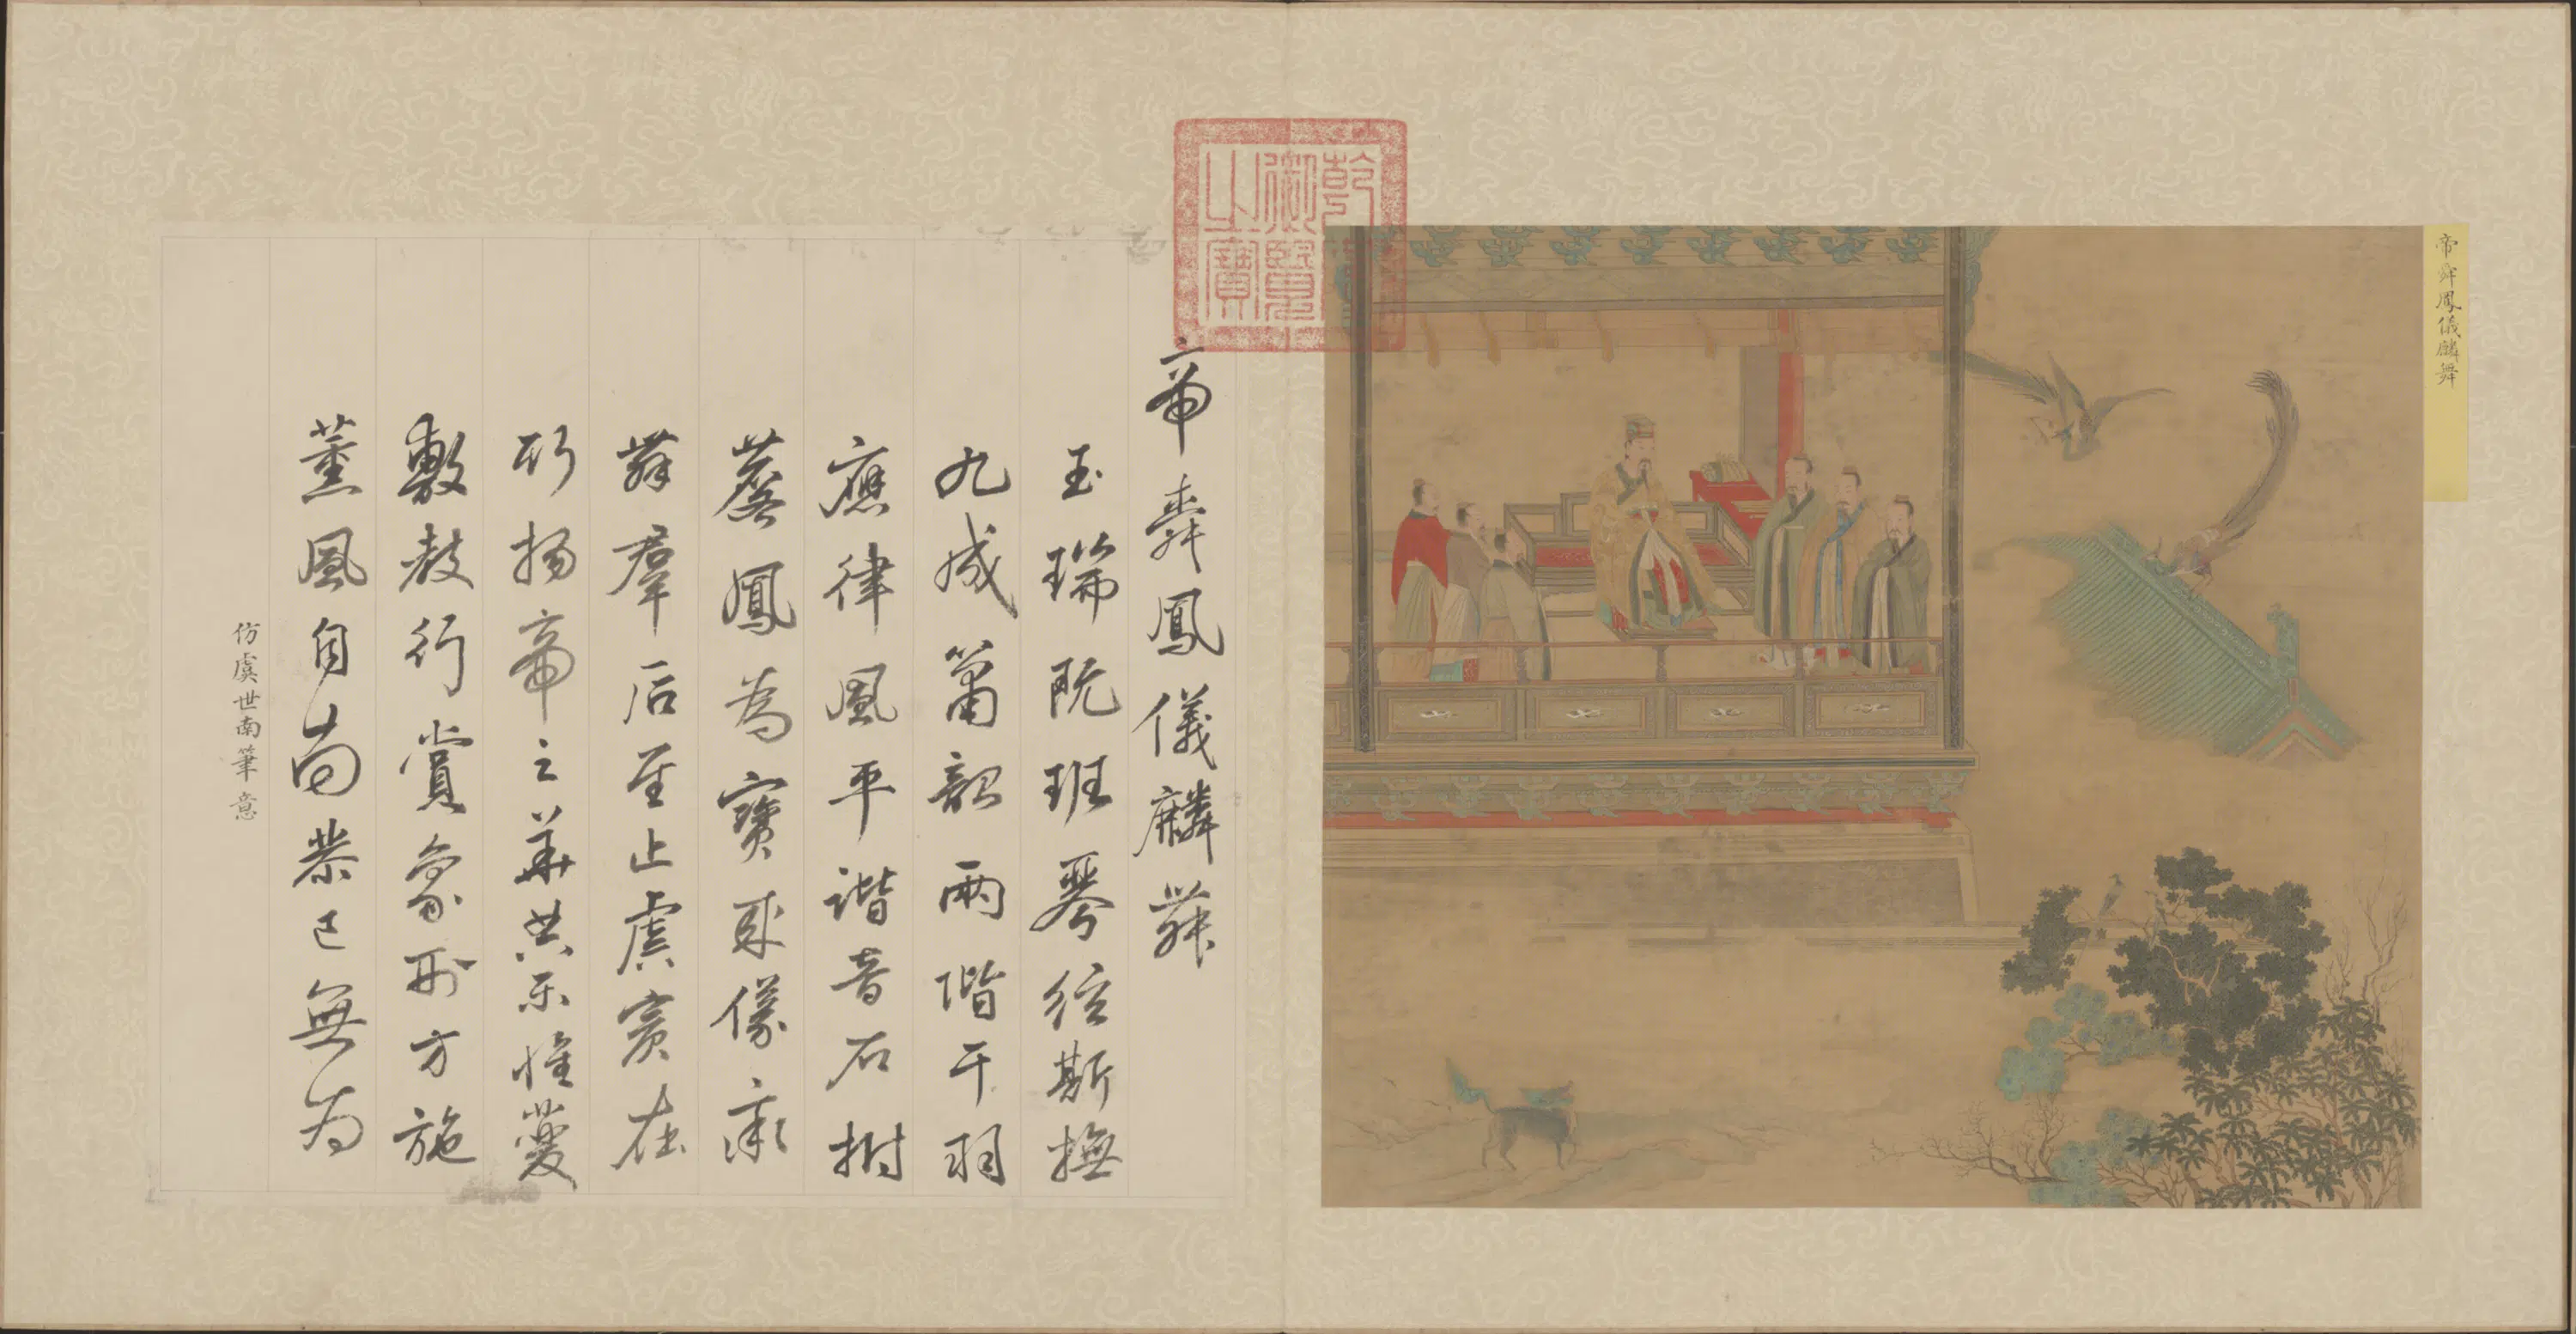 帝舜鳳儀麟舞
乾隆御覽之寶
帝舜鳳儀麟舞
玉瑞既班琴絃斯撫
九成簫韶兩階干羽
應律風平諧音石拊
蓂鳳為寶來儀
舞羣后至止虞賓在
拜揚帝之華共樂惟夔
敷教行賞象刑方施
薰風自南恭己無為
仿虞世南筆意